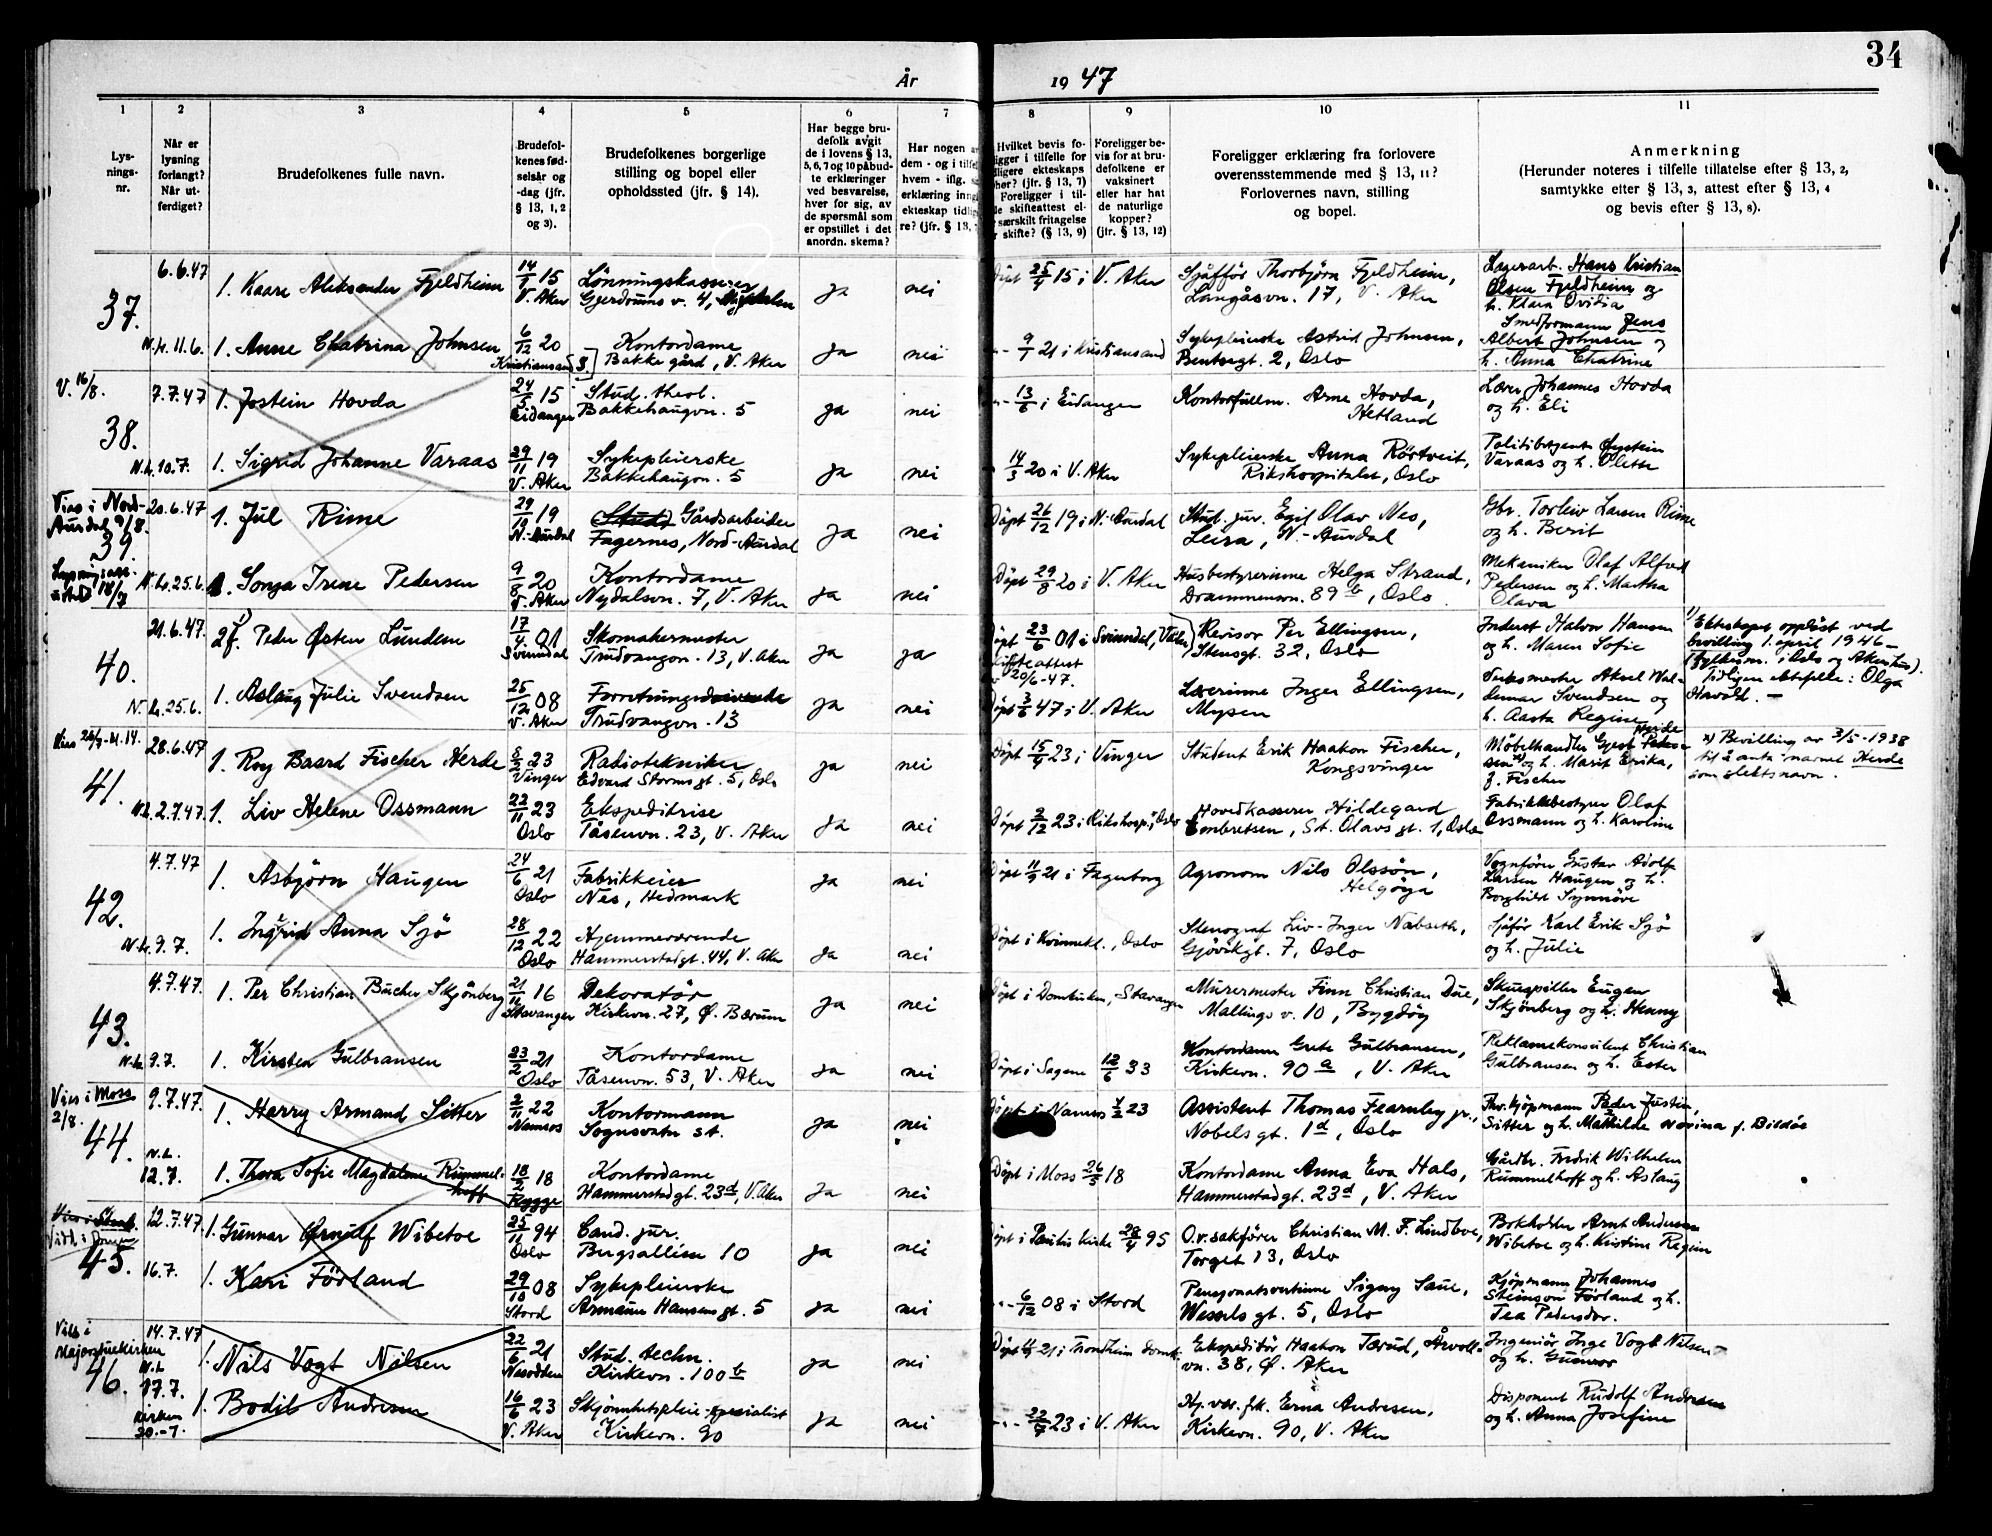 34
År 1947
1 2 3 4 5 6 7 8 9 10 11
Lysnings-nr.
Når er lysning forlangt? Når utferdiget?
Brudefolkenes fulle navn.
Brudefolkenes fødselsår og -dag (jfr. § 13, 1, 2 og 3).
Brudefolkenes borgerlige stilling og bopel eller opholdssted (jfr. § 14).
Har begge brudefolk avgit de i lovens § 13, 5, 6, 7 og 10 påbudte erklæringer ved besvarelse, hver for sig, av de spørsmål som er opstillet i det anordn. skema?
Har nogen
dem - og i tilfel
hvem - iflg.
erklæring inng
ekteskap tidlig
re? (jfr. § 13,
Hvilket bevis fo-
igger i tilfelle for
ligere ekteskaps
hør? (jfr. § 13, 7)
Foreligger i til-
le skifteattest el-
særskilt fritagelse
skifte? (§ 13, 9)
Foreligger bevis for at brudefolkene er vaksinert eller har hat de naturlige kopper? (jfr. § 13, 12)
Foreligger erklæring fra forlovere overensstemmende med § 13, 11? Forlovernes navn, stilling og bopel.
Anmerkning
(Herunder noteres i tilfelle tillatelse efter § 13, 2, samtykke etter § 13, 3, attest efter § 13, 4 og bevis efter § 13, 8).
37.
6.6.47 1. Kaare Aleksander Fjeldheim 14/7 15 V. Aker Lönningskasserer Gjerdrums v. 4, ja nei 25/4 15 i V. Aker Sjåfför Thorbjörn Fjeldheim, Langåsvn. 17, V. Aker Lagerarb. Hans Kristian Olsen Fjeldheim og h. Klara Ovidia
N.h. 11.6. 1. Anne Chatrina Johnsen 6/12 20 Kristiansand S. Kontordame Bakke gård, V. Aker ja nei 9/1 21 i Kristiansand Sykepleierske Astrid Johnsen, Bentsegt. 2, Oslo Smedformann Jens Albert Johnsen og h. Anna Chatrine
V. 16/8.
38.
7.7.47 1. Jostein Hovda 24/5 15 Eidanger Stud. theol. Bakkehaugvn. 5 ja nei 13/6 i Eidanger Kontorfullm. Arne Hovda, Hetland Lærer Johannes Hovda og h. Eli
N.h. 10.7. 1. Sigrid Johanne Varaas 29/11 19 V. Aker Sykepleierske Bakkehaugvn. 5 ja nei 14/3 20 i V. Aker Sykepleierske Anna Röstveit, Rikshospitalet, Oslo Politibetjent Øystein Varaas og h. Olette
Vies i Nord-Aurdal 9/8.
39.
20.6.47 1. Jul Rime 29/10 19 N.-Aurdal Gårdsarbeider Fagernes, Nord-Aurdal ja nei Döpt 26/12 19 i N.-Aurdal Stud. jur. Egil Olav Nes, Leira, N.-Aurdal Gbr. Torleiv Larsen Rime og h. Berit
N.h. 25.6. 1. Sonja Irene Pedersen 9/8 20 V. Aker Kontordame Nydalsvn. 7, V. Aker ja nei Döpt 29/8 20 i V. Aker Husbestyrerinne Helga Strand, Drammensvn. 89 b, Oslo Mekaniker Olaf Alfred Pedersen og h. Martha Olava
40.
21.6.47. 2 f. 1) Peder Østen Lundem 17/4 01 Svinndal Skomakermester Trudvangvn. 13, V. Aker ja ja Döpt 23/6 01 i Svinndal, Våler Skifteattest 20/6-47. Revisor Per Ellingsen, Stensgt. 32, Oslo Inderst Halvor Hansen og h. Maren Sofie
1) Ekteskapet opplöst ved bevilling 1. april 1946 - (fylkesm. i Oslo og Akershus). Tidligere ektefelle: Olga
N.h. 25.6. 1. Aslaug Julie Svendsen 25/12 08 V. Aker Forretningsdrivende Trudvangvn. 13 ja nei Döpt 3/6 47 i V. Aker Lærerinne Inger Ellingsen, Mysen Verksmester Aksel Waldemar Svendsen og h. Aasta Regine
Vies 26/7 kl. 14.
41.
28.6.47 1. Roy Baard Fischer Herde 5/2 23 Vinger Radiotekniker Edvard Stormsgt. 5, Oslo ja nei Döpt 15/4 23 i Vinger Student Erik Haakon Fischer, Kongsvinger Möbelhandler Gjert Pedersen x) Herde og h. Marit Erika, f. Fischer
x) Bevilling av 3/5-1938 til å anta navnet Herde som slektsnavn.
N.h. 2.7.47. 1. Liv Helene Ossmann 22/11 23 Oslo Ekspeditrise Tåsenvn. 23, V. Aker ja nei Döpt 2/12 23 i Rikshosp., Oslo Hovedkasserer Hildegard Embretsen, St. Olavs gt. 1, Oslo Fabrikkbestyrer Olaf Ossmann og h. Karoline
42.
4.7.47 1. Asbjörn Haugen 24/6 21 Oslo Fabrikkeier Nes, Hedmark ja nei Döpt 11/9 21 i Fagerborg Agronom Nils Olssön, Helgöya Vognförer Gustav Adolf Larsen Haugen og h. Borghild Synnöve
N.h. 9.7. 1. Ingrid Anna Sjö 28/12 22 Oslo Hjemmeværende Hammerstadgt. 44, V. Aker ja nei Döpt i Kvinnekl., Oslo Stenograf Liv-Inger Nabseth, Gjövikgt. 7, Oslo Sjåför Karl Erik Sjö og h. Julie
43.
4.7.47. 1. Per Christian Bucher Skjönberg 21/11 16 Stavanger Dekoratör Kirkevn. 27, Ø. Bærum ja nei Döpt i Domkirken, Stavanger Murermester Finn Christian Due, Mallings v. 10, Bygdöy Skuespiller Eugen Skjönberg og h. Henny
N.h. 9.7. 1. Kirsten Gulbransen 23/2 21 Oslo Kontordame Tåsenvn. 53, V. Aker ja nei Döpt i Sagene 12/6 33 Kontordame Grete Gulbransen, Kirkevn. 90 a, V. Aker Reklamekonsulent Christian Gulbransen og h. Ester
Vies i Moss 2/8.
44.
9.7.47. 1. Harry Armand Sitter 2/11 22 Namsos Kontormann Sognsvatn st. ja nei Döpt i Namsos 4/2 23 Assistent Thomas Fearnley jr., Nobels gt. 1 d, Oslo Fhv. kjöpmann Peder Justin Sitter og h. Mathilde Novina f. Bildöe
N.h. 12.7. 1. Thora Sofie Magdalene Rummelhoff 18/2 18 Rygge Kontordame Hammerstadgt. 23 d, V. Aker ja nei Döpt i Moss 26/5 18 Kontordame Anna Eva Hals, Hammerstadgt. 23 d, V. Aker Gårdbr. Fredrik Wilhelm Rummelhoff og h. Aslaug
45.
12.7.47. 1. Gunnar Ørnulf Wibetoe 25/11 94 Oslo Cand. jur. Bergsalleen 10 ja nei Döpt i Paulus kirke 28/4 95 O.r.sakförer Christian M. F. Lindboe, Torget 13, Oslo Bokholder Arnt Andersen Wibetoe og h. Kristine Regine
16.7. 1. Kari Förland 29/10 08 Stord Sykepleierske Armauer Hansens gt. 5 ja nei 6/12 08 i Stord Pensjonatsvertinne Signy Saue, Wessels gt. 5, Oslo Kjöpmann Johannes Steinson Förland og h. Tea Pedersdtr.
Vies i Majorstuekirken
46.
14.7.47 1. Nils Vogt Nilsen 22/6 21 Nesodden Stud. techn. Kirkevn. 100 b ja nei Döpt 21 i Trondheim domk. Ekspeditör Haakon Tærud, Årvollvn. 38, Ø. Aker Ingeniör Inge Vogt Nilsen og h. Gunvor
N.h. 17.7. kirken 30.-7. 1. Bodil Andresen 16/6 23 V. Aker Skjönnhetspleie-spesialist Kirkevn. 90 ja nei 22/7 23 i V. Aker Hj.vær. frk. Erna Andresen, Kirkevn. 90, V. Aker Disponent Rudolf Andresen og h. Anna Josefine